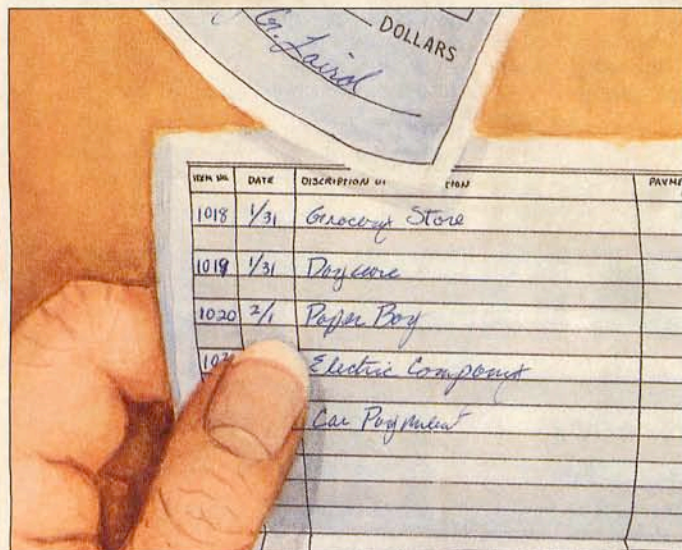 DOLLARS
G. Laird
ITEM NO. DATE DISCRIPTION OF TION PAYME
1018 1/31 Grocery Store
1019 1/31 Daycare
1020 2/1 Paper Boy
102 Electric Company
Car Payment